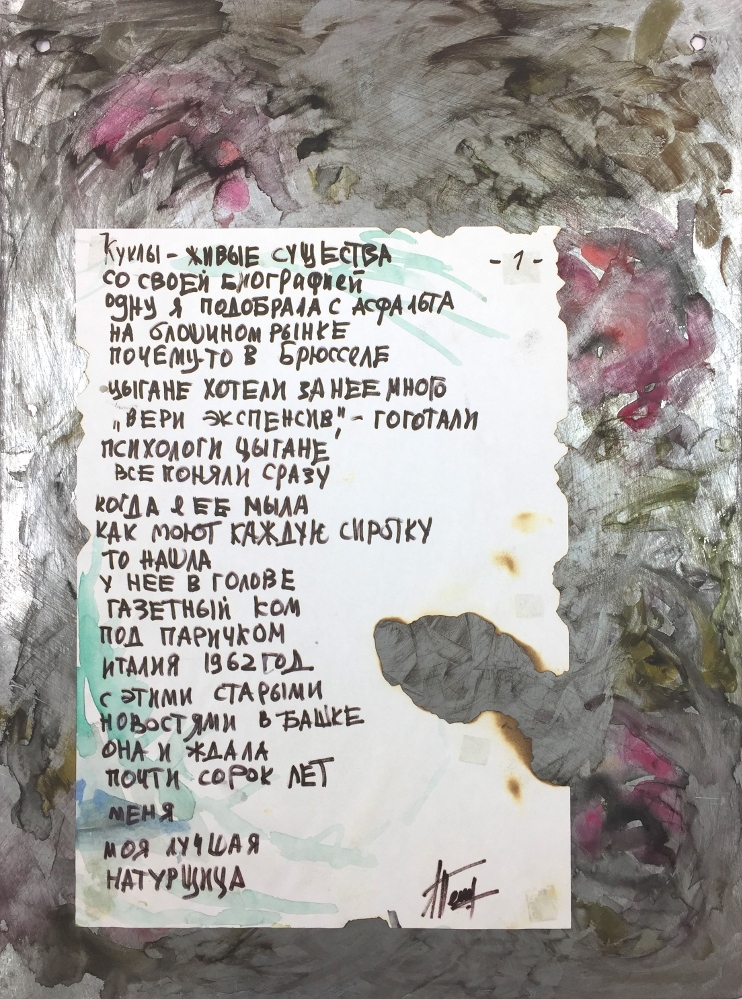 Куклы - живые существа
- 1 -
со своей биографией
одну я подобрала с асфальта
на блошином рынке
почему-то в Брюсселе
цыгане хотели за нее много
„вери экспенсив", - гоготали
психологи цыгане
все поняли сразу
когда я ее мыла
как моют каждую сиротку
то нашла
у нее в голове
газетный ком
под паричком
Италия 1962 год
с этими старыми
новостями в башке
она и ждала
почти сорок лет
меня
моя лучшая
натурщица